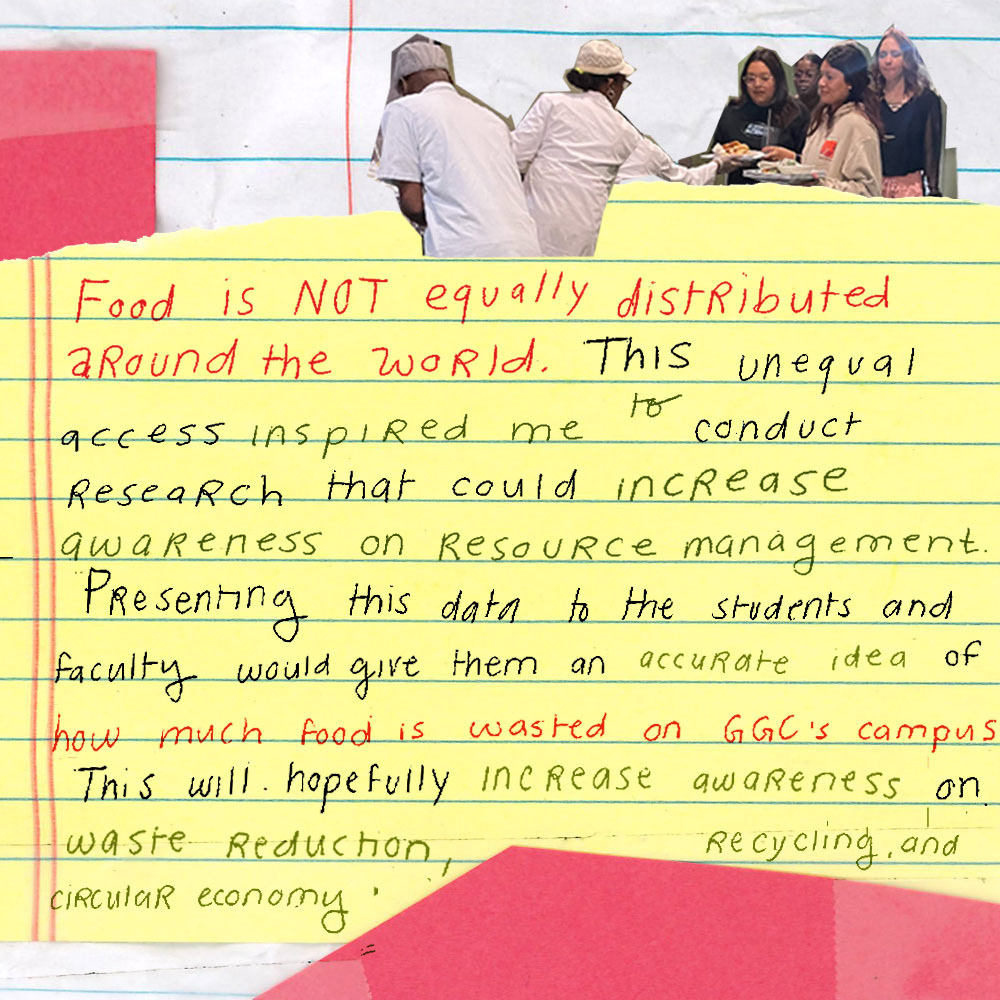 Food is NOT equally distRibuted
aRound the woRld. This unequal
access inspiRed me to conduct
ReseaRch that could incRease
awaReness on ResouRce management.
PResenting this data to the students and
faculty would give them an accuRate idea of
how much food is wasted on GGC's campus
This will. hopefully incRease awaReness on
waste Reduction, Recycling, and
ciRculaR economy.